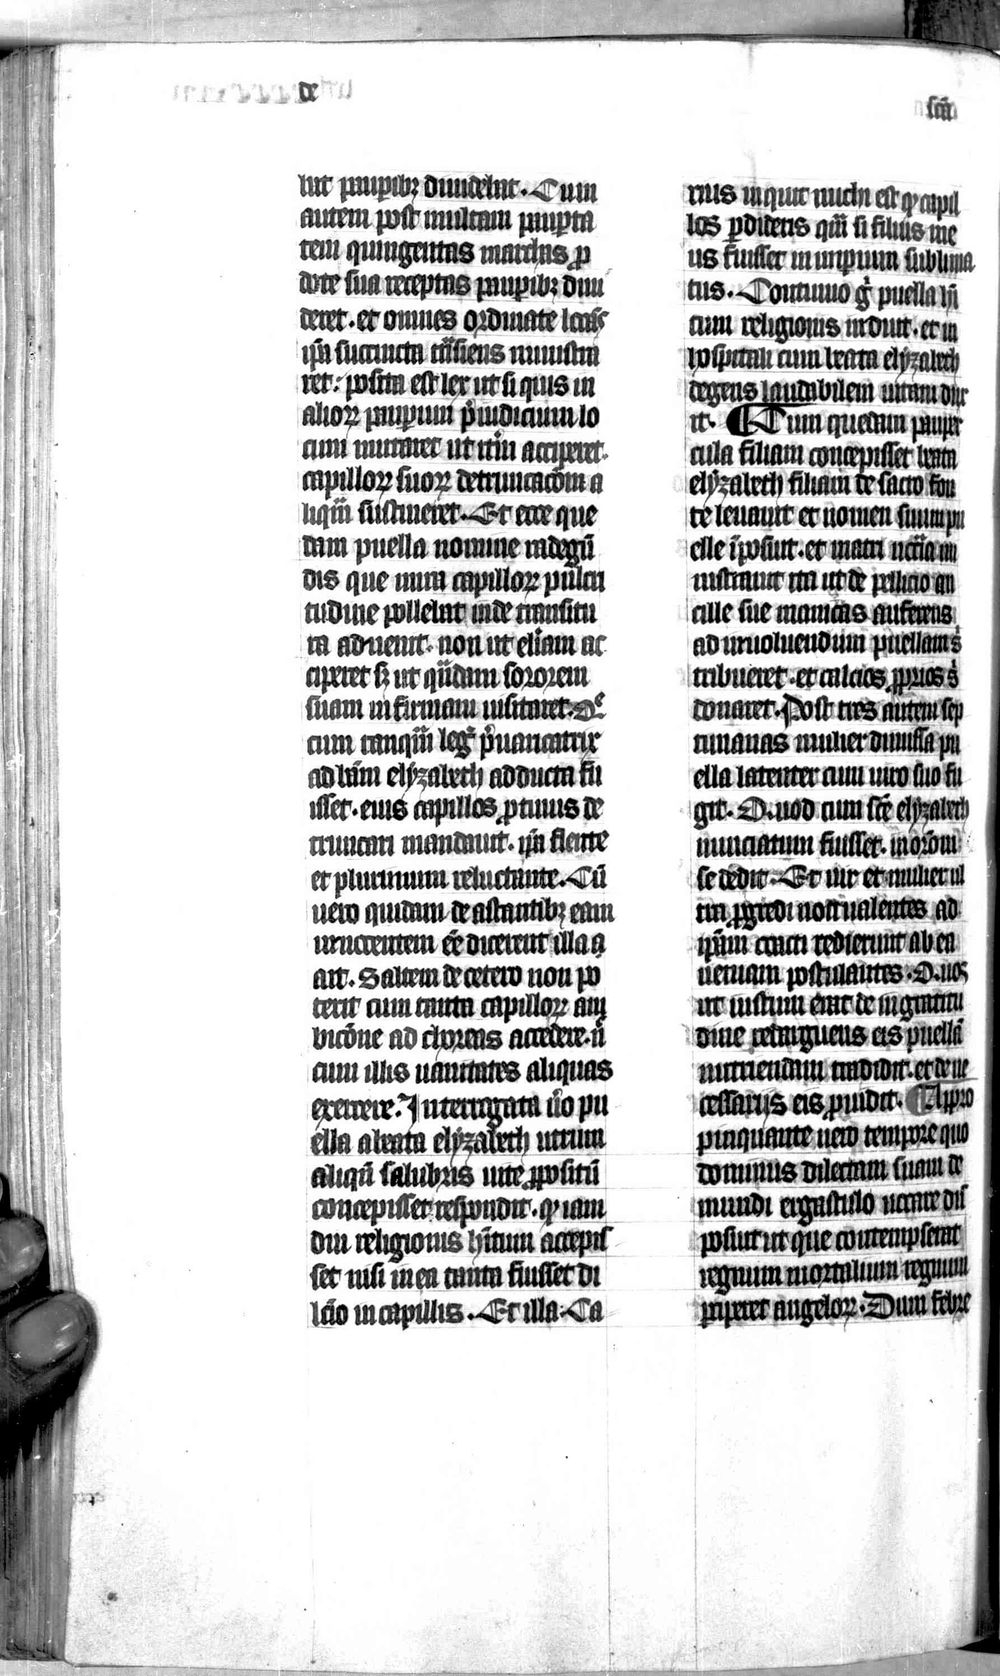 de
scā
uit pauꝑibꝫ diuidebat. Cum
autem post multam pauꝑta
tem quingentas marchas ꝓ
dote sua receptas pauꝑibꝫ diui
deret. et omnes ordinate
ip̄a succincta t̄nsiens ministra
ret: posita est lex ut si quis in
alioꝝ pauꝑum p̄iudicium lo
cum mutaret ut acciperet.
capilloꝝ suoꝝ detruncacōm a
liqūm sustineret. Et ecce que
dam puella nomine radegū
dis que mira capilloꝝ pulcri
tudine pollebat inde transitu
ra aduenit. non ut eliām ac
ciperet sꝫ ut qūdam sororem
suam infirmam uisitaret.
cum tanqūm leg p̄uaricatrix
ad bt̄am elyzabeth adducta fu
isset. eius capillos ꝓtinus de
truncari mandauit. ip̄a flente
et plurimum reluctante. Cū
uero quidam de astantibꝫ eam
innocentem eē dicerent illa
ait. Saltem de cetero non po
terit cum tanta capilloꝝ am
bicōne ad choreas accedere. n̄
cum illis uanitates aliquas
exercere. Interrogata u̅o pu
ella a beata elyzabeth utrum
aliqū salubris uite ꝓpositū
concepisset respondit. ꝙ iam
diu religionis hītum accepis
set nisi in ea tanta fuisset di
lc̄io in capillis. Et illa. Ca
rius inquit michi est ꝙ capil
los ꝑdideris qm̄ si filius me
us fuisset in imperium sublima
tus. Continuo g̊ puella hī
cum religionis induit. et in
hospitali cum beata elyzabeth
degens laudabilem uitam dux
it. Cum quedam pauper
cula filiam concepisset beata
elyzabeth filiam de sacro fon
te leuauit et nomen suum pu
elle īposuit. et matri nc̄cīa mi
nistrauit ita ut de pellicio an
cille sue manicas auferens
ad inuoluendum puellam s̄
tribueret. et calcios ꝓprios s̄
donaret. Post tres autem sep
timanas mulier dimissa pu
ella latenter cum uiro suo fu
git. Quod cum sc̄e elyzabeth
nunciatum fuisset. in or̄om
se dedit. Et uir et mulier ul
tra ꝓgredi non ualentes ad
ip̄am coacti redierunt ab ea
ueniam postulantes. Quos
ut iustum erat de ingratitu
dine redarguens eis puellā
nutriendam tradidit. et de ne
cessariis eis ꝓuidit. Appro
pinquante uero tempore quo
dominus dilectam suam de
mundi ergastulo uocare dis
posuit ut que contempserat
regnum mortalium regnum
ꝑciperet angeloꝝ. Dum febre